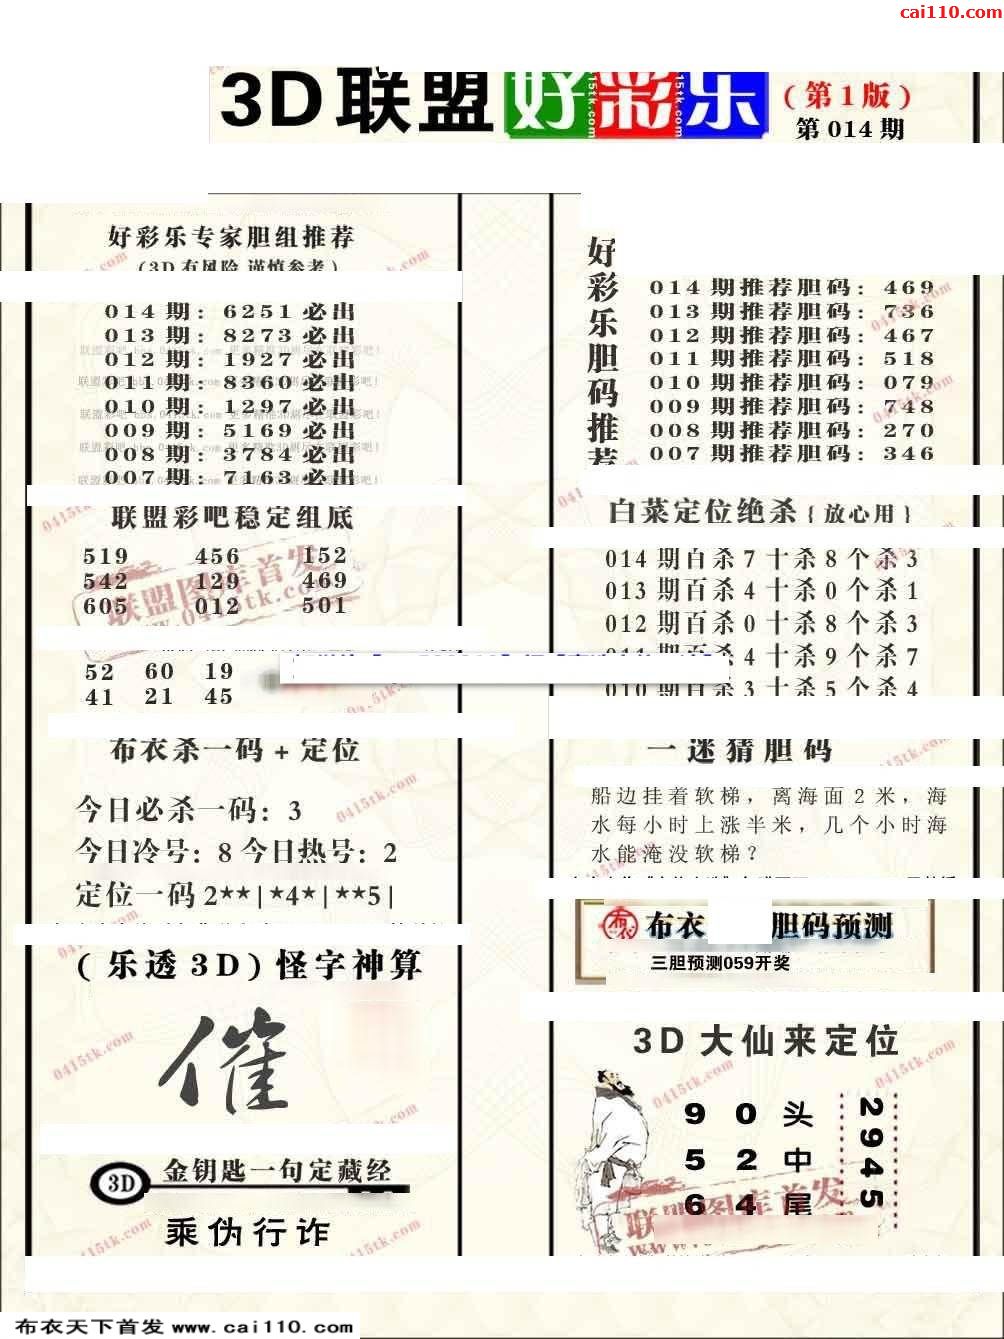 cai110.com
3D联盟好彩乐
(第1版)
第014期
好彩乐专家胆组推荐
(3D有风险 谨慎参考)
014期：6251必出
013期：8273必出
012期：1927必出
011期：8360必出
010期：1297必出
009期：5169必出
008期：3784必出
007期：7163必出
联盟彩吧稳定组底
519 456 152
542 129 469
605 012 501
52 60 19
41 21 45
布衣杀一码+定位
今日必杀一码：3
今日冷号：8今日热号：2
定位一码2**|*4*|**5|
(乐透3D)怪字神算
催
3D 金钥匙一句定藏经
乘伪行诈
好彩乐胆码推荐
014期推荐胆码：469
013期推荐胆码：736
012期推荐胆码：467
011期推荐胆码：518
010期推荐胆码：079
009期推荐胆码：748
008期推荐胆码：270
007期推荐胆码：346
白菜定位绝杀{放心用}
014期百杀7十杀8个杀3
013期百杀4十杀0个杀1
012期百杀0十杀8个杀3
杀4十杀9个杀7
010期百杀3十杀5个杀4
一迷猜胆码
船边挂着软梯，离海面2米，海
水每小时上涨半米，几个小时海
水能淹没软梯？
布衣 布衣 胆码预测
三胆预测059开奖
3D大仙来定位
9 0头
5 2中
6 4尾
2945
联盟图库首发
0415tk.com
布衣天下首发 www.cai110.com